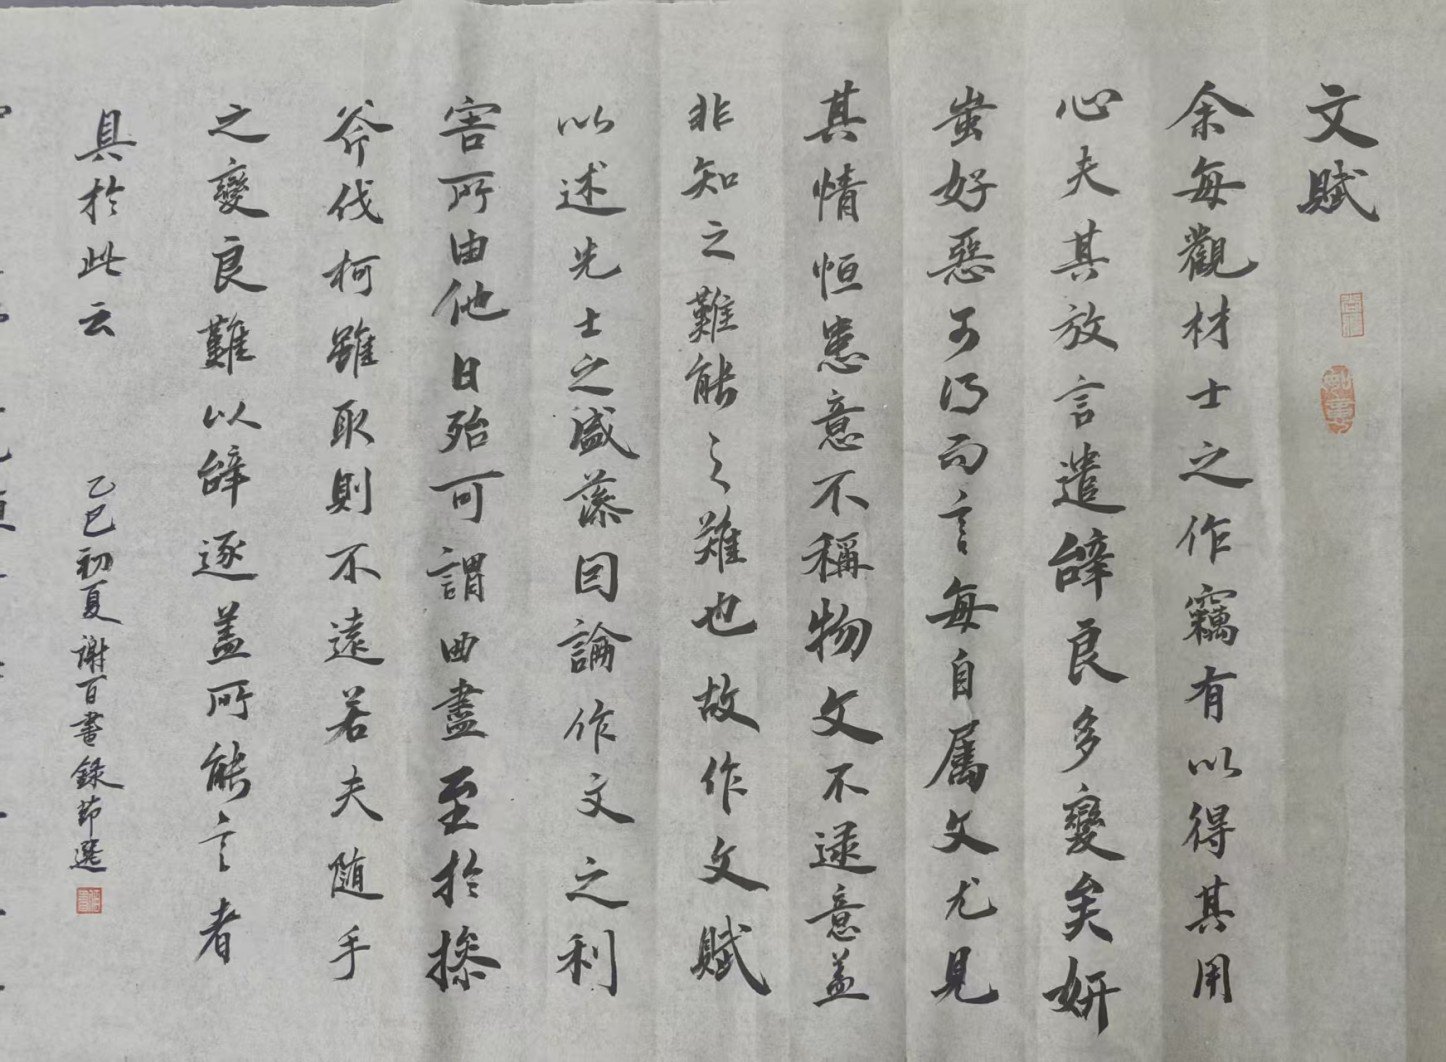 文賦
余每觀材士之作竊有以得其用
心夫其放言遣辭良多變矣妍
蚩好惡可得而言每自属文尤見
其情恒患意不稱物文不逮意盖
非知之難能之難也故作文賦
以述先士之盛藻因論作文之利
害所由他日殆可謂曲盡至於操
斧伐柯雖取則不遠若夫随手
之變良難以辭逐盖所能言者
具於此云
乙巳初夏謝百書錄節選